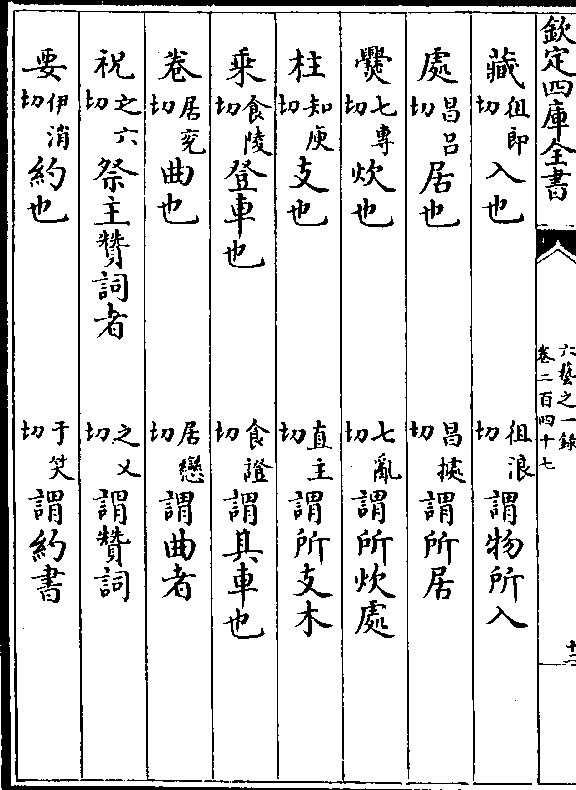 欽定四庫全書
六藝之一錄
卷二百四十七
十二
藏徂郎切入也 徂浪切謂物所入
處昌呂切居也 昌據切謂所居
爨七專切炊也 七亂切謂所炊處
柱知庾切支也 直主切謂所支木
乘食陵切登車也 食證切謂具車也
卷居兖切曲也 居戀切謂曲者
祝之六切祭主贊詞者 之乂切謂贊詞
要伊消切約也 于笑切謂約書